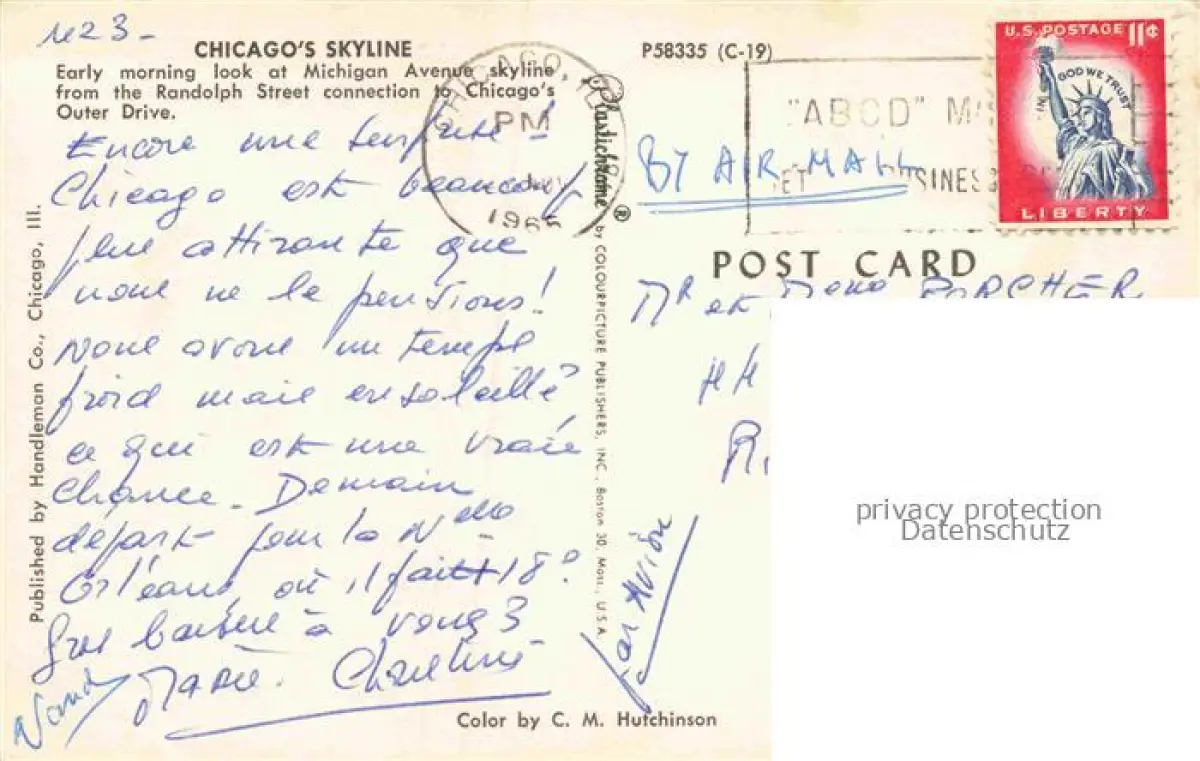 U23-
CHICAGO'S SKYLINE
Early morning look at Michigan Avenue skyline
from the Randolph Street connection to Chicago's
Outer Drive.
Encore une
Chicago est beaucoup
plus attirante que
nous ne le pensions!
Nous avons un temps
froid mais ensoleillé
ce qui est une vraie
chance. Demain
départ pour la Nelle
Orléans, où il fait 18°
Gros baisers à vous 3
Marie. Christine
Published by Handleman Co., Chicago, Ill.
Plastichrome ® by COLOURPICTURE PUBLISHERS, INC., Boston 30, Mass., U.S.A.
Color by C. M. Hutchinson
P58335 (C-19)
CHICAGO,
PM
NOV
1965
"ABCD"
U.S. POSTAGE 11¢
IN GOD WE TRUST
LIBERTY
BY AIR MAIL
POST CARD
Mr et
par Avion
privacy protection
Datenschutz